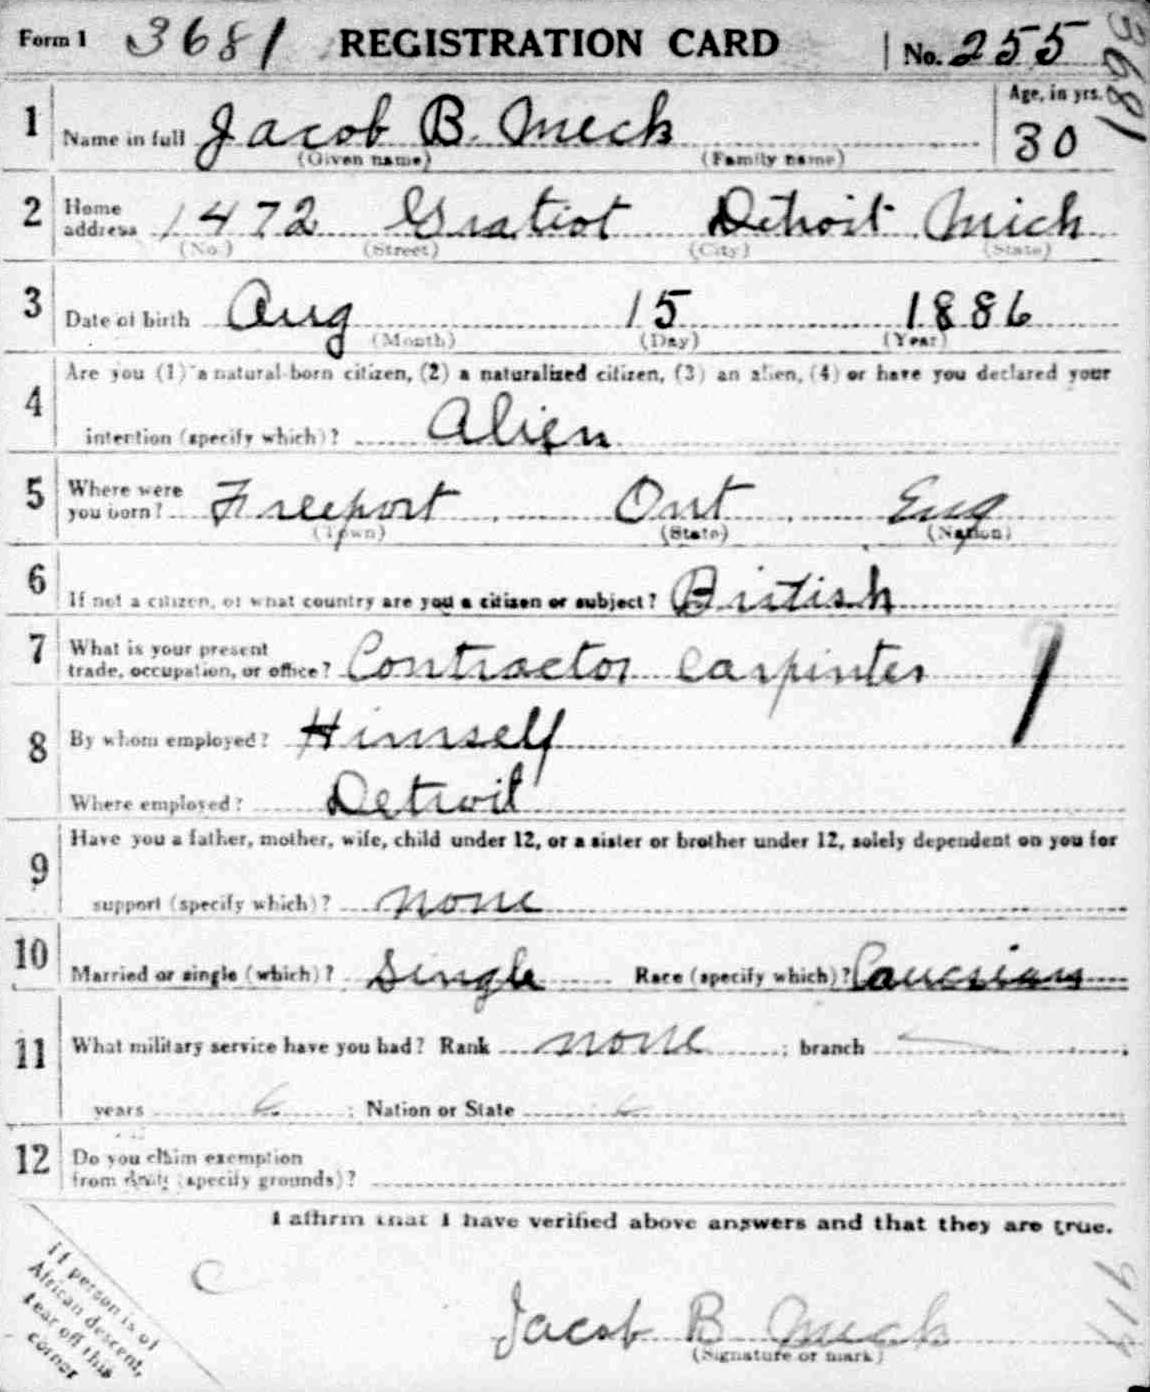 Form 1 3681 REGISTRATION CARD No. 255
3681
1 Name in full Jacob B. Meck Age, in yrs. 30
(Given name) (Family name)
2 Home address 1472 Gratiot Detroit Mich
(No.) (Street) (City) (State)
3 Date of birth Aug 15 1886
(Month) (Day) (Year)
4 Are you (1) a natural-born citizen, (2) a naturalized citizen, (3) an alien, (4) or have you declared your
intention (specify which)? Alien
5 Where were you born? Freeport Ont Eng
(Town) (State) (Nation)
6 If not a citizen, of what country are you a citizen or subject? British
7 What is your present
trade, occupation, or office? Contractor Carpinter
8 By whom employed? Himself
Where employed? Detroit
9 Have you a father, mother, wife, child under 12, or a sister or brother under 12, solely dependent on you for
support (specify which)? none
10 Married or single (which)? Single Race (specify which)? Caucsian
11 What military service have you had? Rank none ; branch ;
years ; Nation or State
12 Do you claim exemption
from draft (specify grounds)?
I affirm that I have verified above answers and that they are true.
C
Jacob B Meck
(Signature or mark)
If person is of
African descent,
tear off this
corner